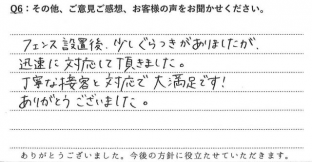 Q6：その他、ご意見ご感想、お客様の声をお聞かせください。
フェンス設置後、少しぐらつきがありましたが、
迅速に対応して頂きました。
丁寧な接客と対応で大満足です!
ありがとうございました。
ありがとうございました。今後の方針に役立たせていただきます。